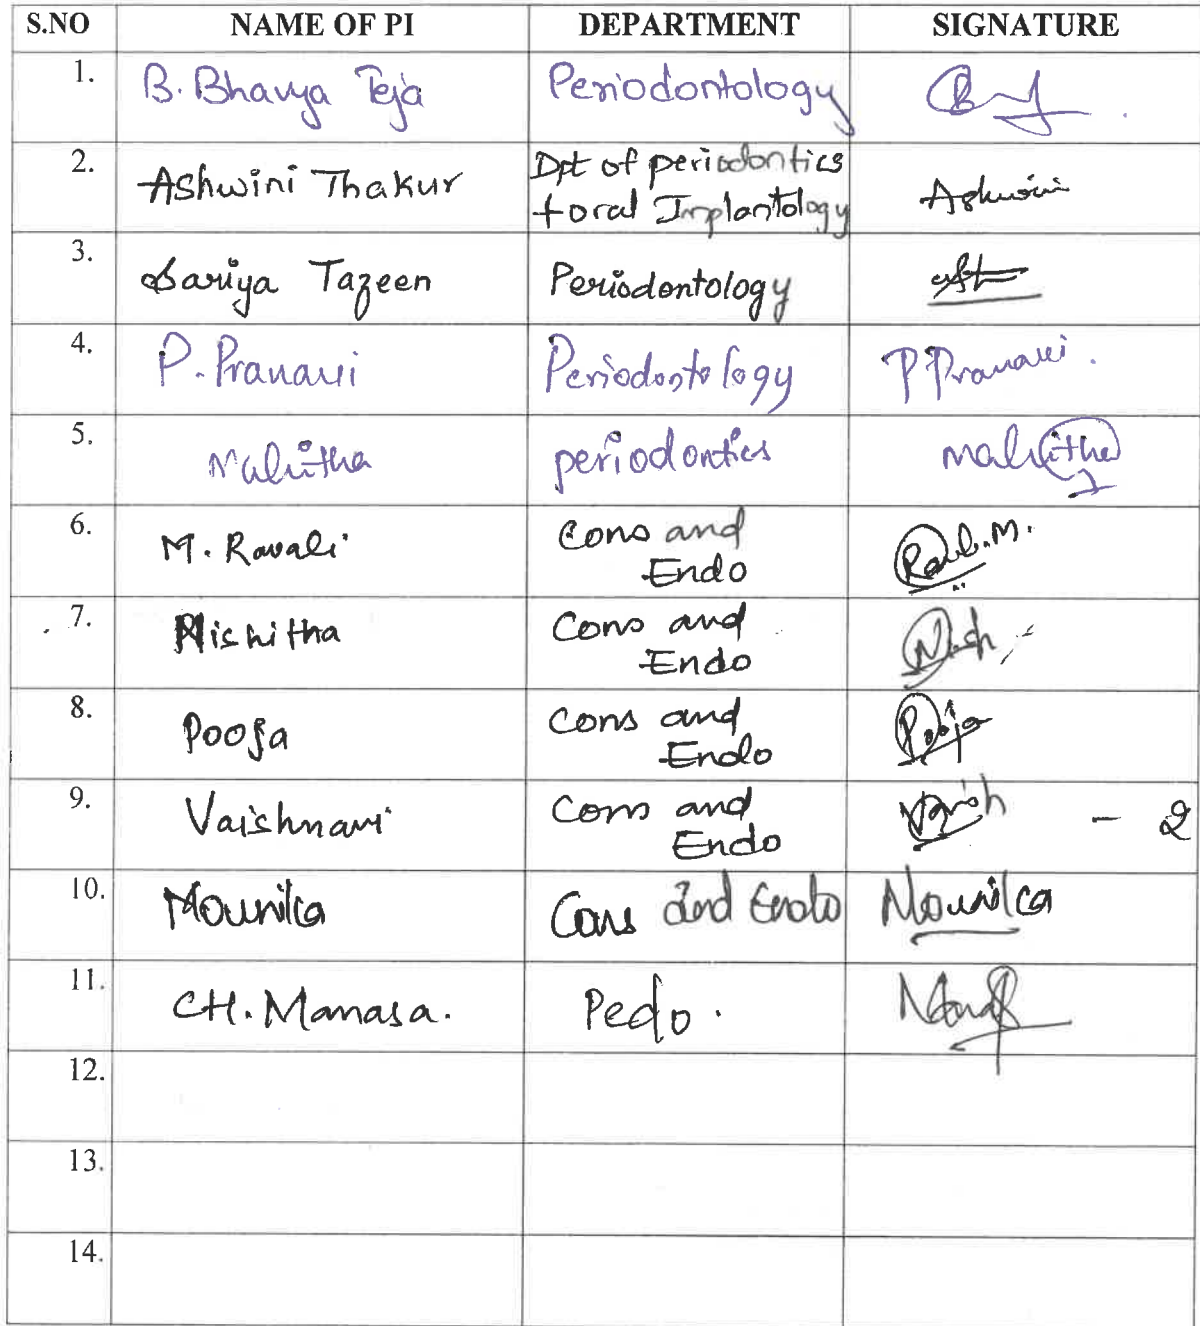 S.NO NAME OF PI DEPARTMENT SIGNATURE
1. B. Bhavya Teja Periodontology
2. Ashwini Thakur Dpt of periodontics Ashwini
+ oral Implantology
3. Sariya Tazeen Periodontology
4. P. Pranavi Periodontology P Pranavi.
5. Mahitha periodontics mahitha
6. M. Ravali Cons and
Endo
7. Nishitha Cons and Nish
Endo
8. Pooja Cons and Pooja
Endo
9. Vaishnavi Cons and Vaish - 2
Endo
10. Mounika Cons and Endo Mounika
11. CH. Manasa. Pedo.
12.
13.
14.